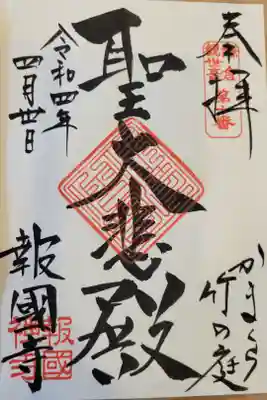 奉拝
かまくら
竹の庭
聖大悲殿
令和四年
四月廿日
報國寺
報國
禅寺